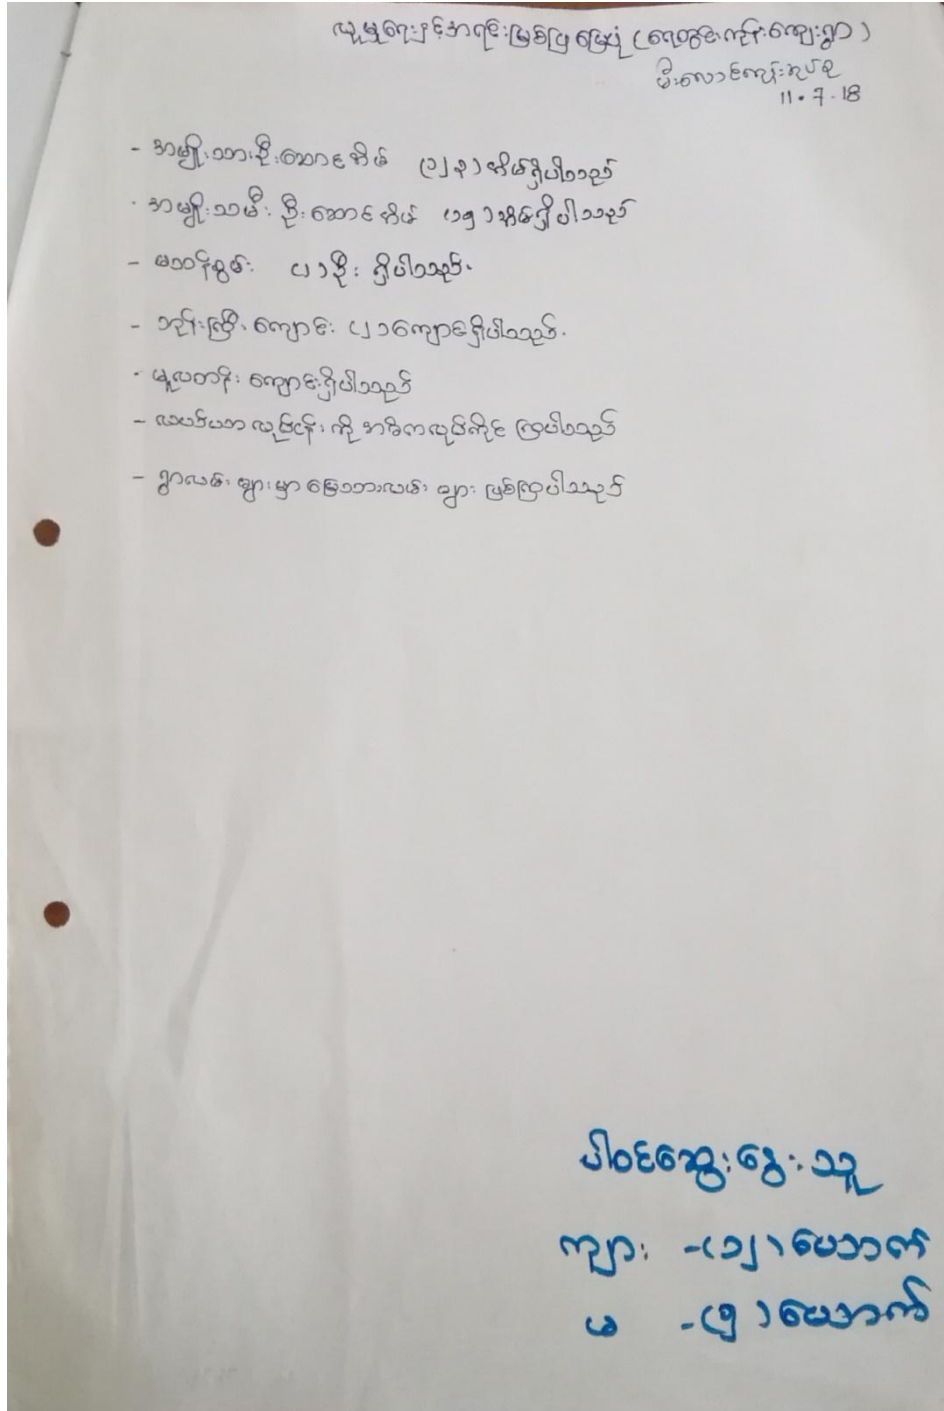 လူမှုရေးနှင့်အရင်းမြစ်ပြမြေပုံ (ရေတွင်းကုန်းကျေးရွာ)
မီးလောင်ကျွန်းအုပ်စု
11.7.18
- အမျိုးသားဦးဆောင်အိမ် အိမ်ရှိပါသည်
- အမျိုးသမီးဦးဆောင်အိမ် (၁၅) အိမ်ရှိပါသည်
- မသန်စွမ်း (၂) ဦး ရှိပါသည်.
- ဘုန်းကြီးကျောင်း (၂) ကျောင်းရှိပါသည်.
- မူလတန်းကျောင်းရှိပါသည်
- လယ်ယာလုပ်ငန်းကို အဓိကလုပ်ကိုင်ကြပါသည်
- ရွာလမ်းများမှာ မြေသားလမ်းများ ဖြစ်ကြပါသည်
ပါဝင်ဆွေးနွေးသူ
ကျား -(၁၂) ယောက်
မ -(၅) ယောက်